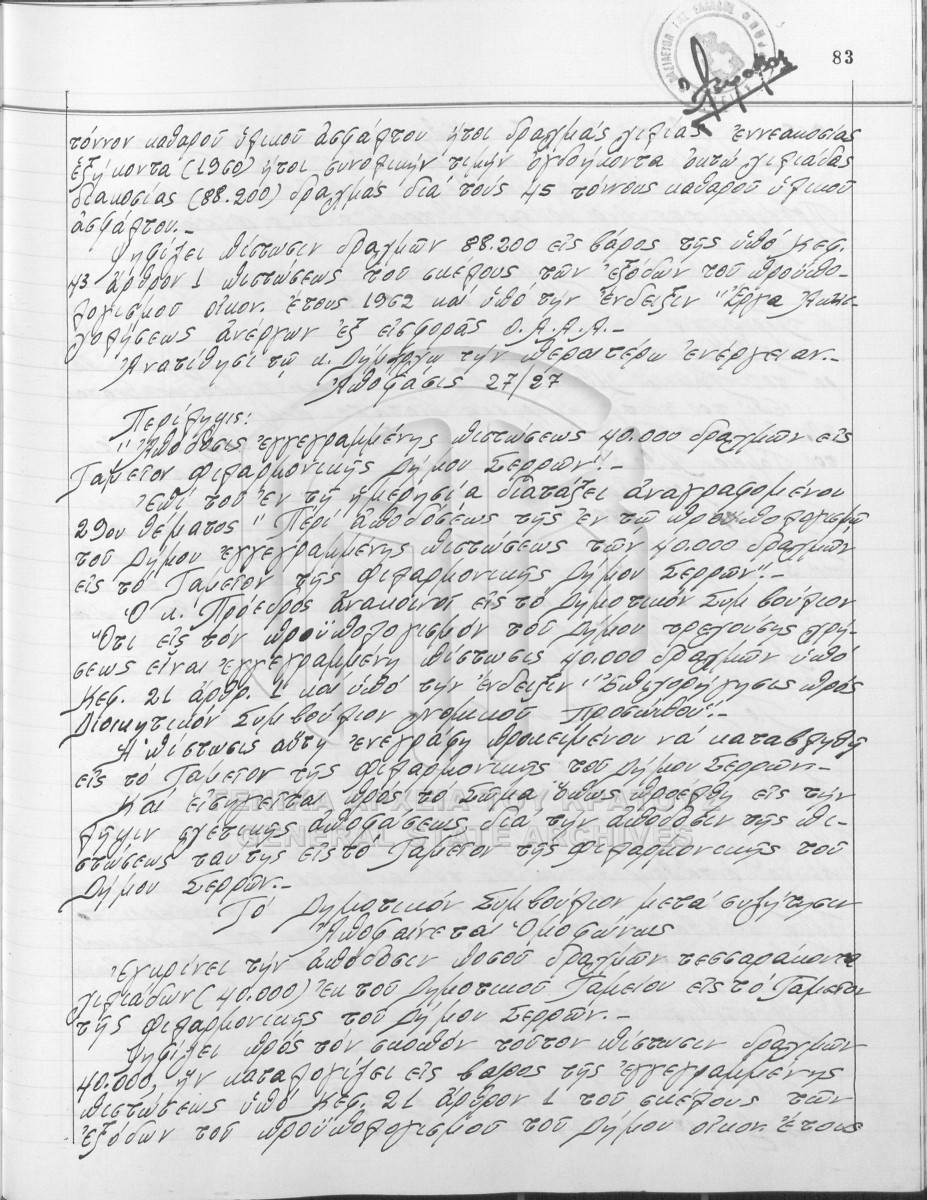 83
τόννον καθαροῦ ὑλικοῦ ἀσφάλτου ἤτοι δραχμάς χιλίας ἐννεακοσίας
ἑξήκοντα (1960) ἤτοι συνολικήν τιμήν ὀγδοήκοντα ὀκτώ χιλιάδας
διακοσίας (88.200) δραχμάς διά τούς 45 τόννους καθαροῦ ὑλικοῦ
ἀσφάλτου.-
Ψηφίζει πίστωσιν δραχμῶν 88.200 εἰς βάρος τῆς ὑπό Κεφ.
43 ἄρθρον 1 πιστώσεως τοῦ σκέλους τῶν ἐξόδων τοῦ προϋπο-
λογισμοῦ οἰκον. ἔτους 1962 καί ὑπό τήν ἔνδειξιν "Ἔργα
ἀνέργων ἐξ εἰσφορᾶς Ο.Α.Α.Α.-
Ἀνατίθησι τῷ κ. Δημάρχῳ τήν περαιτέρω ἐνέργειαν.-
Ἀπόφασις 27/27
Περίληψις:
"Ἀπόδοσις ἐγγεγραμμένης πιστώσεως 40.000 δραχμῶν εἰς
Ταμεῖον Φιλαρμονικῆς Δήμου Σερρῶν".-
Ἐπί τοῦ ἐν τῇ ἡμερησίᾳ διατάξει ἀναγραφομένου
29ου θέματος "Περί ἀποδόσεως τῆς ἐν τῷ προϋπολογισμῷ
τοῦ Δήμου ἐγγεγραμμένης πιστώσεως τῶν 40.000 δραχμῶν
εἰς τό Ταμεῖον τῆς Φιλαρμονικῆς Δήμου Σερρῶν".-
Ὁ κ. Πρόεδρος ἀνακοινοῖ εἰς τό Δημοτικόν Συμβούλιον
Ὅτι εἰς τόν προϋπολογισμόν τοῦ Δήμου τρεχούσης χρή-
σεως εἶναι ἐγγεγραμμένη πίστωσις 40.000 δραχμῶν ὑπό
Κεφ. 21 ἄρθρ. 1 καί ὑπό τήν ἔνδειξιν "Ἐπιχορήγησις πρός
Διοικητικόν Συμβούλιον νομικοῦ Προσώπου".-
Ἡ πίστωσις αὕτη ἐνεγράφη προκειμένου νά καταβληθῇ
εἰς τό Ταμεῖον τῆς Φιλαρμονικῆς τοῦ Δήμου Σερρῶν.-
Καί εἰσηγεῖται πρός τό Σῶμα ὅπως προέλθῃ εἰς τήν
λῆψιν σχετικῆς ἀποφάσεως διά τήν ἀπόδοσιν τῆς πι-
στώσεως ταύτης εἰς τό Ταμεῖον τῆς Φιλαρμονικῆς τοῦ
Δήμου Σερρῶν.-
Τό Δημοτικόν Συμβούλιον μετά συζήτησιν
Ἀποφαίνεται Ὁμοφώνως
Ἐγκρίνει τήν ἀπόδοσιν ποσοῦ δραχμῶν τεσσαράκοντα
χιλιάδων (40.000) ἐκ τοῦ Δημοτικοῦ Ταμείου εἰς τό Ταμεῖον
τῆς Φιλαρμονικῆς τοῦ Δήμου Σερρῶν.-
Ψηφίζει πρός τόν σκοπόν τοῦτον πίστωσιν δραχμῶν
40.000, ἥν καταλογίζει εἰς βάρος τῆς ἐγγεγραμμένης
πιστώσεως ὑπό Κεφ. 21 ἄρθρον 1 τοῦ σκέλους τῶν
ἐξόδων τοῦ προϋπολογισμοῦ τοῦ Δήμου οἰκον. ἔτους
ΓΕΝΙΚΑ ΑΡΧΕΙΑ ΤΟΥ ΚΡΑΤΟΥΣ
GENERAL STATE ARCHIVES